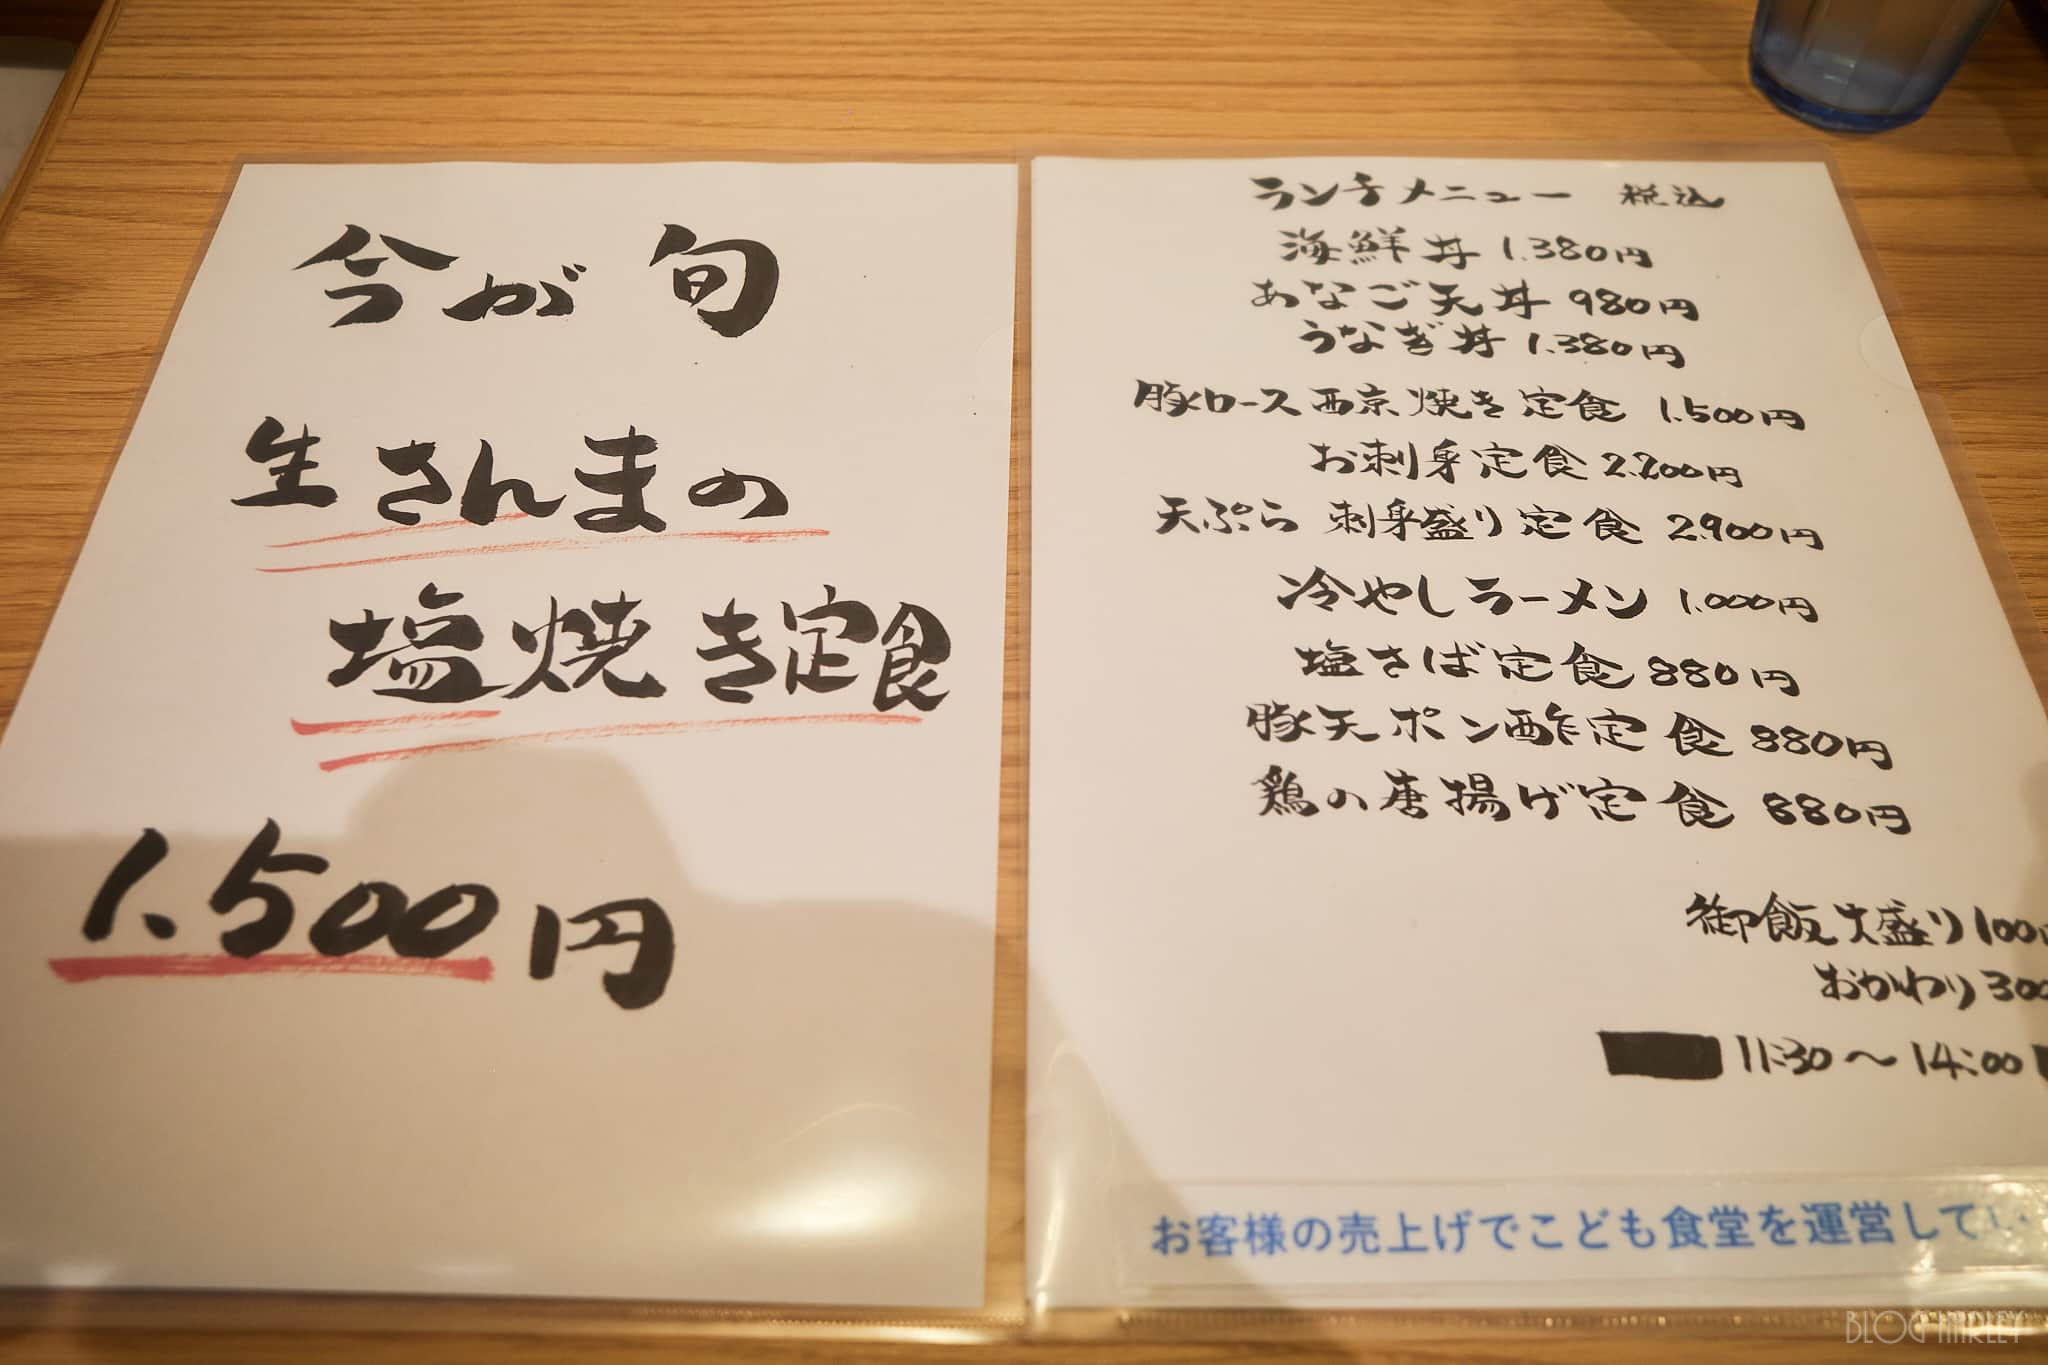 今が旬
生さんまの
塩焼き定食
1.500円
ランチメニュー 税込
海鮮丼 1.380円
あなご天丼 980円
うなぎ丼 1.380円
豚ロース西京焼き定食 1.500円
お刺身定食 2.200円
天ぷら 刺身盛り定食 2.900円
冷やしラーメン 1.000円
塩さば定食 880円
豚天ポン酢定食 880円
鶏の唐揚げ定食 880円
御飯大盛り 100円
おかわり 300
11:30〜14:00
お客様の売上げでこども食堂を運営してい
BLOG HARLEY